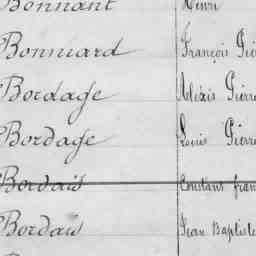 Bonnant Henri
Bonniard François Pier
Bordage Alexis Pierre
Bordage Louis Pierre
Bordais Constant Fran
Bordais Jean Baptiste